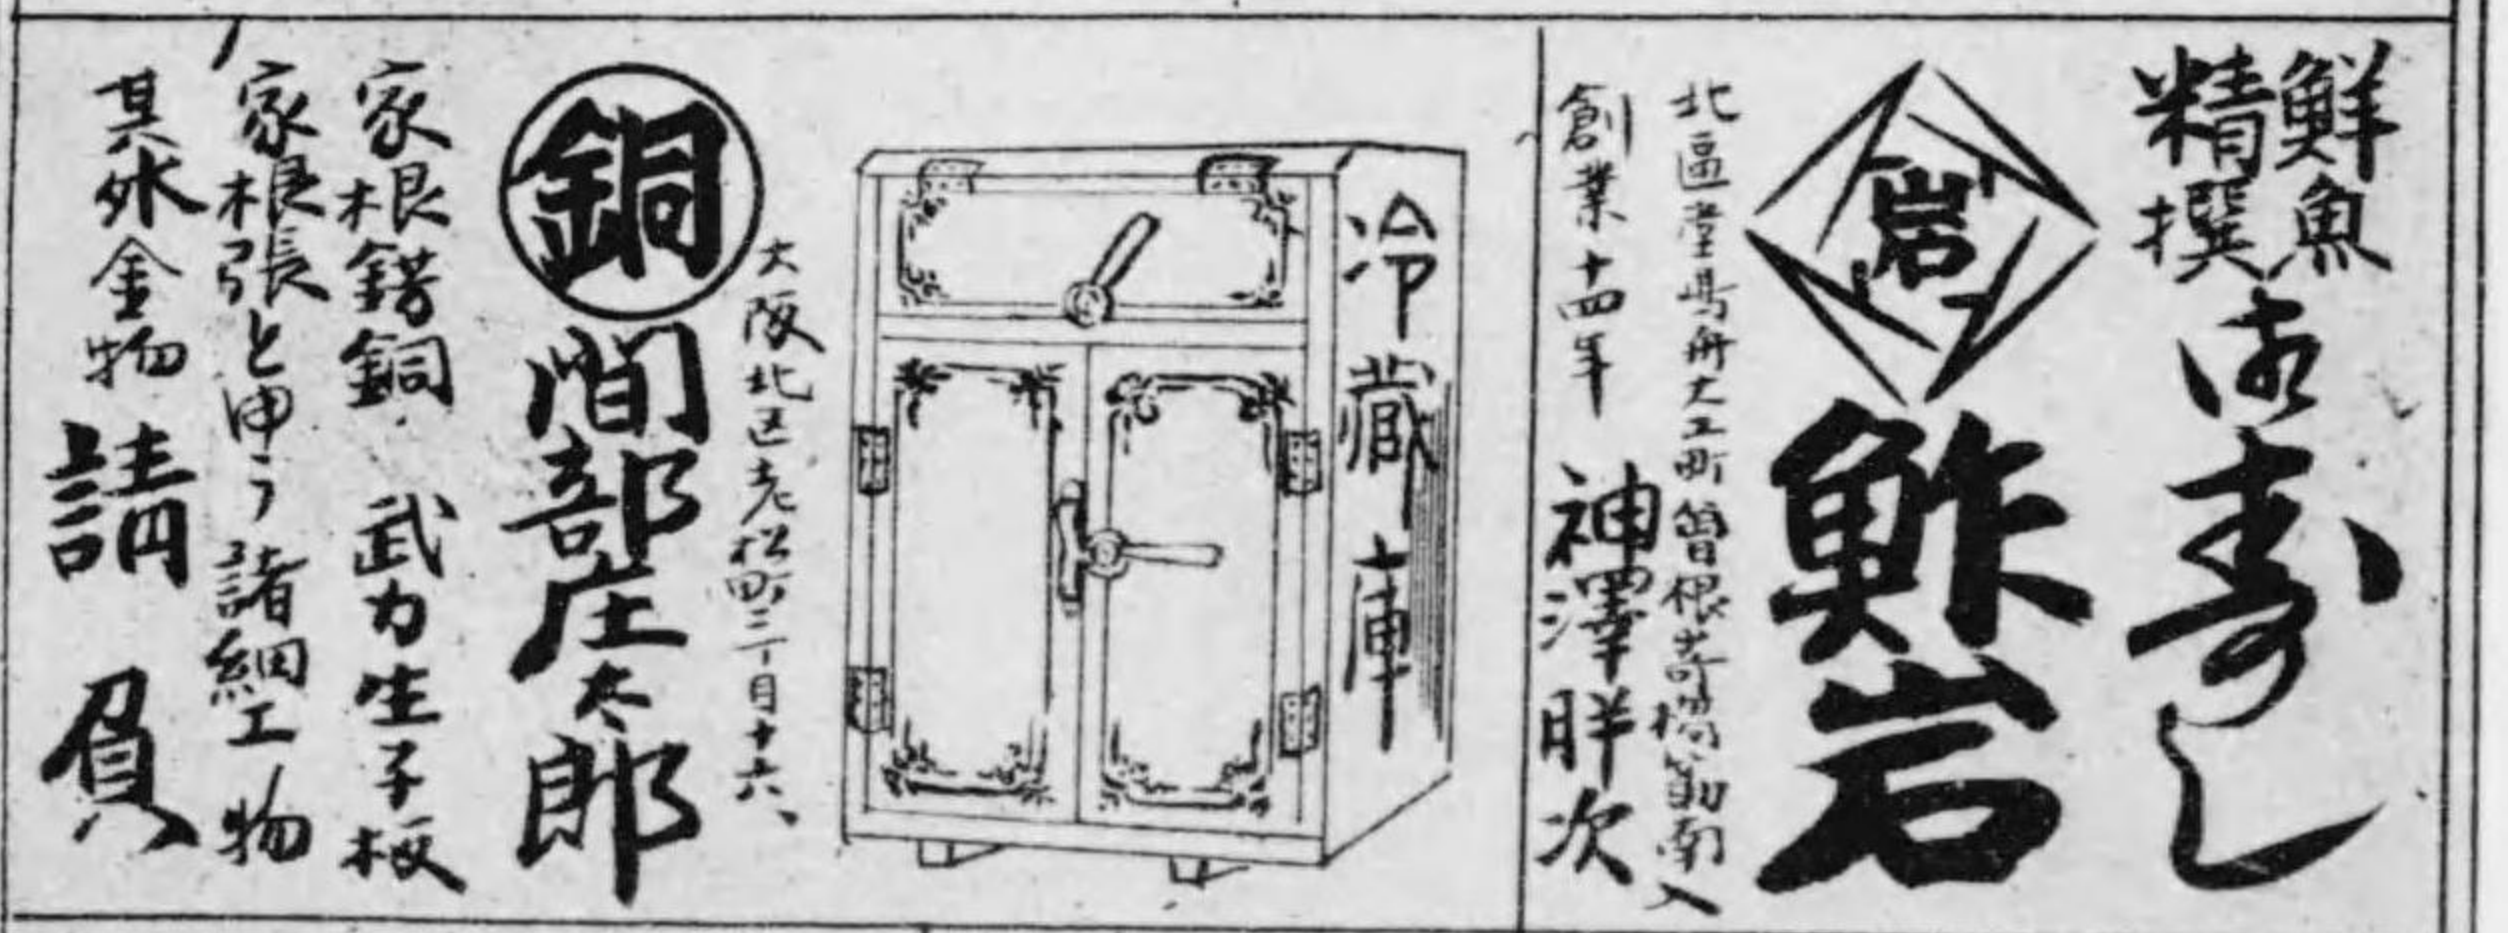 鮮魚
精撰
御寿し
岩
鮓岩
北區堂島舟大工町曽根崎橋筋南入
創業十四年 神澤胖次
冷藏庫
大阪北区老松町三丁目十六、
銅
間部庄太郎
家根錺銅 武力生子板
家根張と申ス諸細工物
其外金物 請負